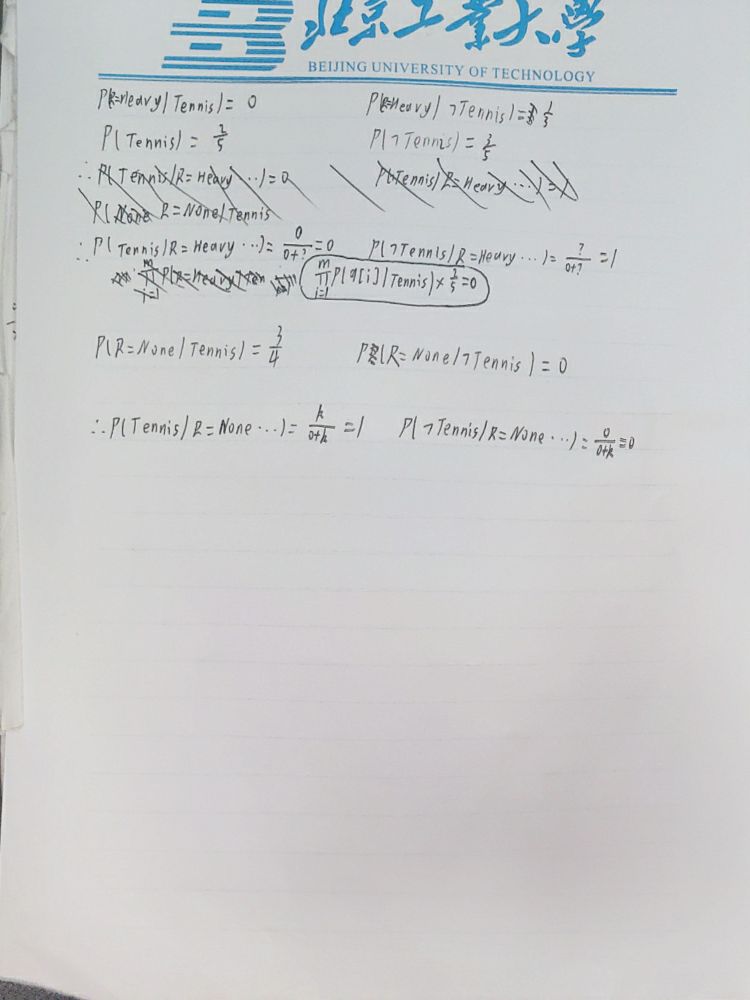 北京工业大学
BEIJING UNIVERSITY OF TECHNOLOGY
P(R=Heavy|Tennis)= 0 P(R=Heavy|¬Tennis)= 1/3
P(Tennis)= 2/5 P(¬Tennis)= 3/5
∴ P(Tennis|R=Heavy ...)=0 P(¬Tennis|R=Heavy ...)=
P( R=None|Tennis
∴ P(Tennis|R=Heavy ...)= 0/(0+?) =0 P(¬Tennis|R=Heavy ...)= ?/(0+?) =1
∏ᵢ₌₁ᵐ P(R=Heavy|Ten ∏ᵢ₌₁ᵐ P(q[i]|Tennis)× 2/5 =0
P(R=None|Tennis)= 3/4 P(R=None|¬Tennis)=0
∴ P(Tennis|R=None ...)= k/(0+k) =1 P(¬Tennis|R=None ...)= 0/(0+k) =0